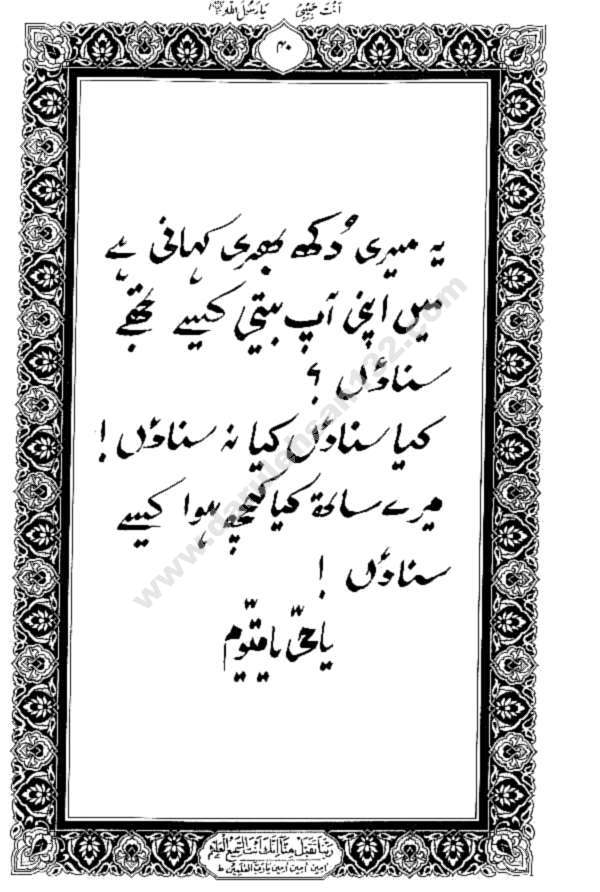 اَنْتَ حَبِيْبِيْ يَا رَسُوْلَ اللهِ
۴۰
یہ میری دُکھ بھری کہانی ہے
میں اپنی آپ بیتی کیسے تجھے
سناؤں ؟
کیا سناؤں کیا نہ سناؤں !
میرے ساتھ کیا کچھ ہوا کیسے
سناؤں !
یا حیّ یا قیّوم
رَبَّنَا تَقَبَّلْ مِنَّا اِنَّكَ اَنْتَ السَّمِيْعُ الْعَلِيْمُ
اٰمين اٰمين اٰمين يَا رَبَّ الْعٰلَمِيْنَ ط